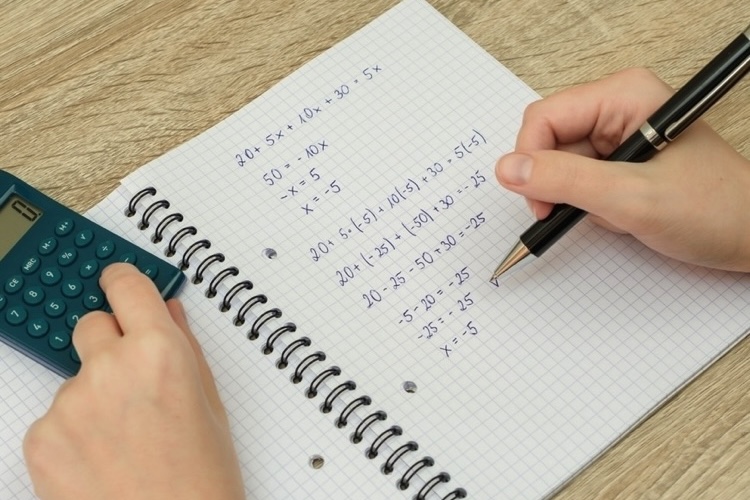 20 + 5x + 10x + 30 = 5x
50 = - 10x
-x = 5
x = -5
20 + 5·(-5) + 10(-5) + 30 = 5(-5)
20 + (-25) + (-50) + 30 = -25
20 - 25 - 50 + 30 = -25
-5 - 20 = -25
-25 = -25
x = -5
M- M+
√
MRC % ÷
CE 9 ×
8 6
7 5 3
4 2
1
+ - =